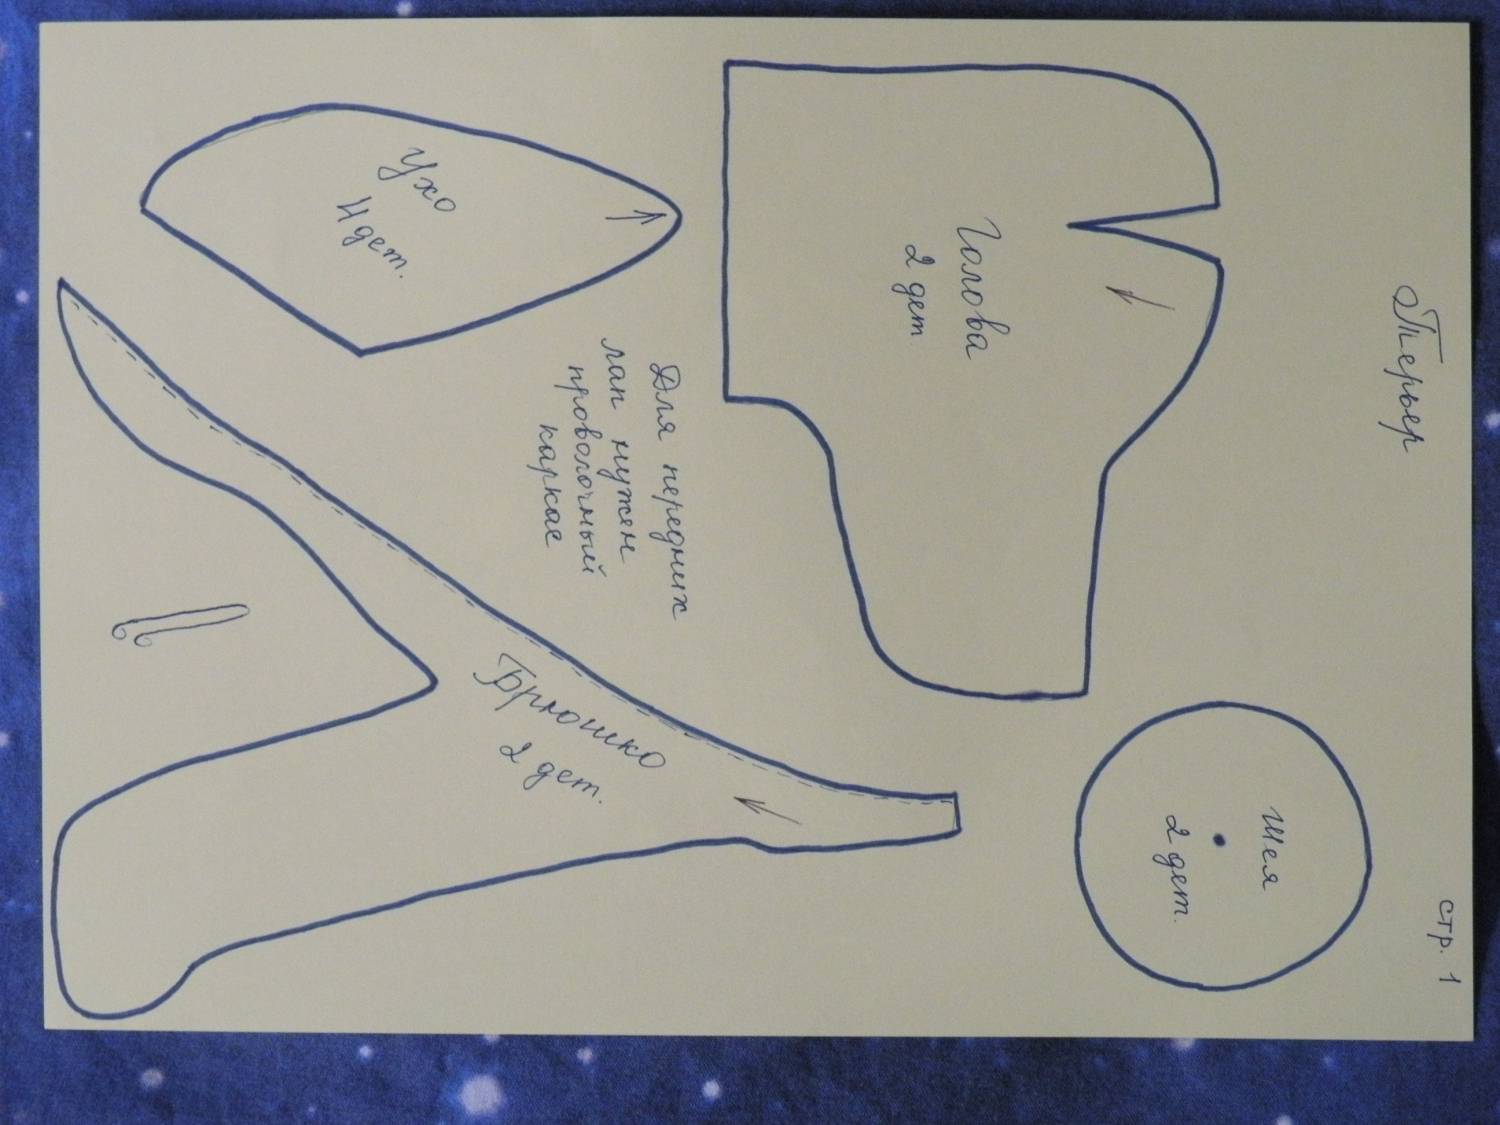 Терьер
стр. 1
Голова
2 дет
Шея
2 дет.
Для передних
лап нужен
проволочный
каркас
Ухо
4 дет.
Брюшко
2 дет.